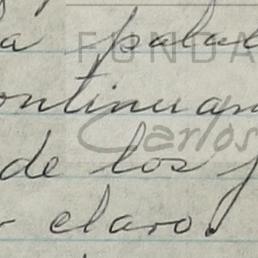 a palab
FUNDA
ontinuam
Carlos
de los f
claro.